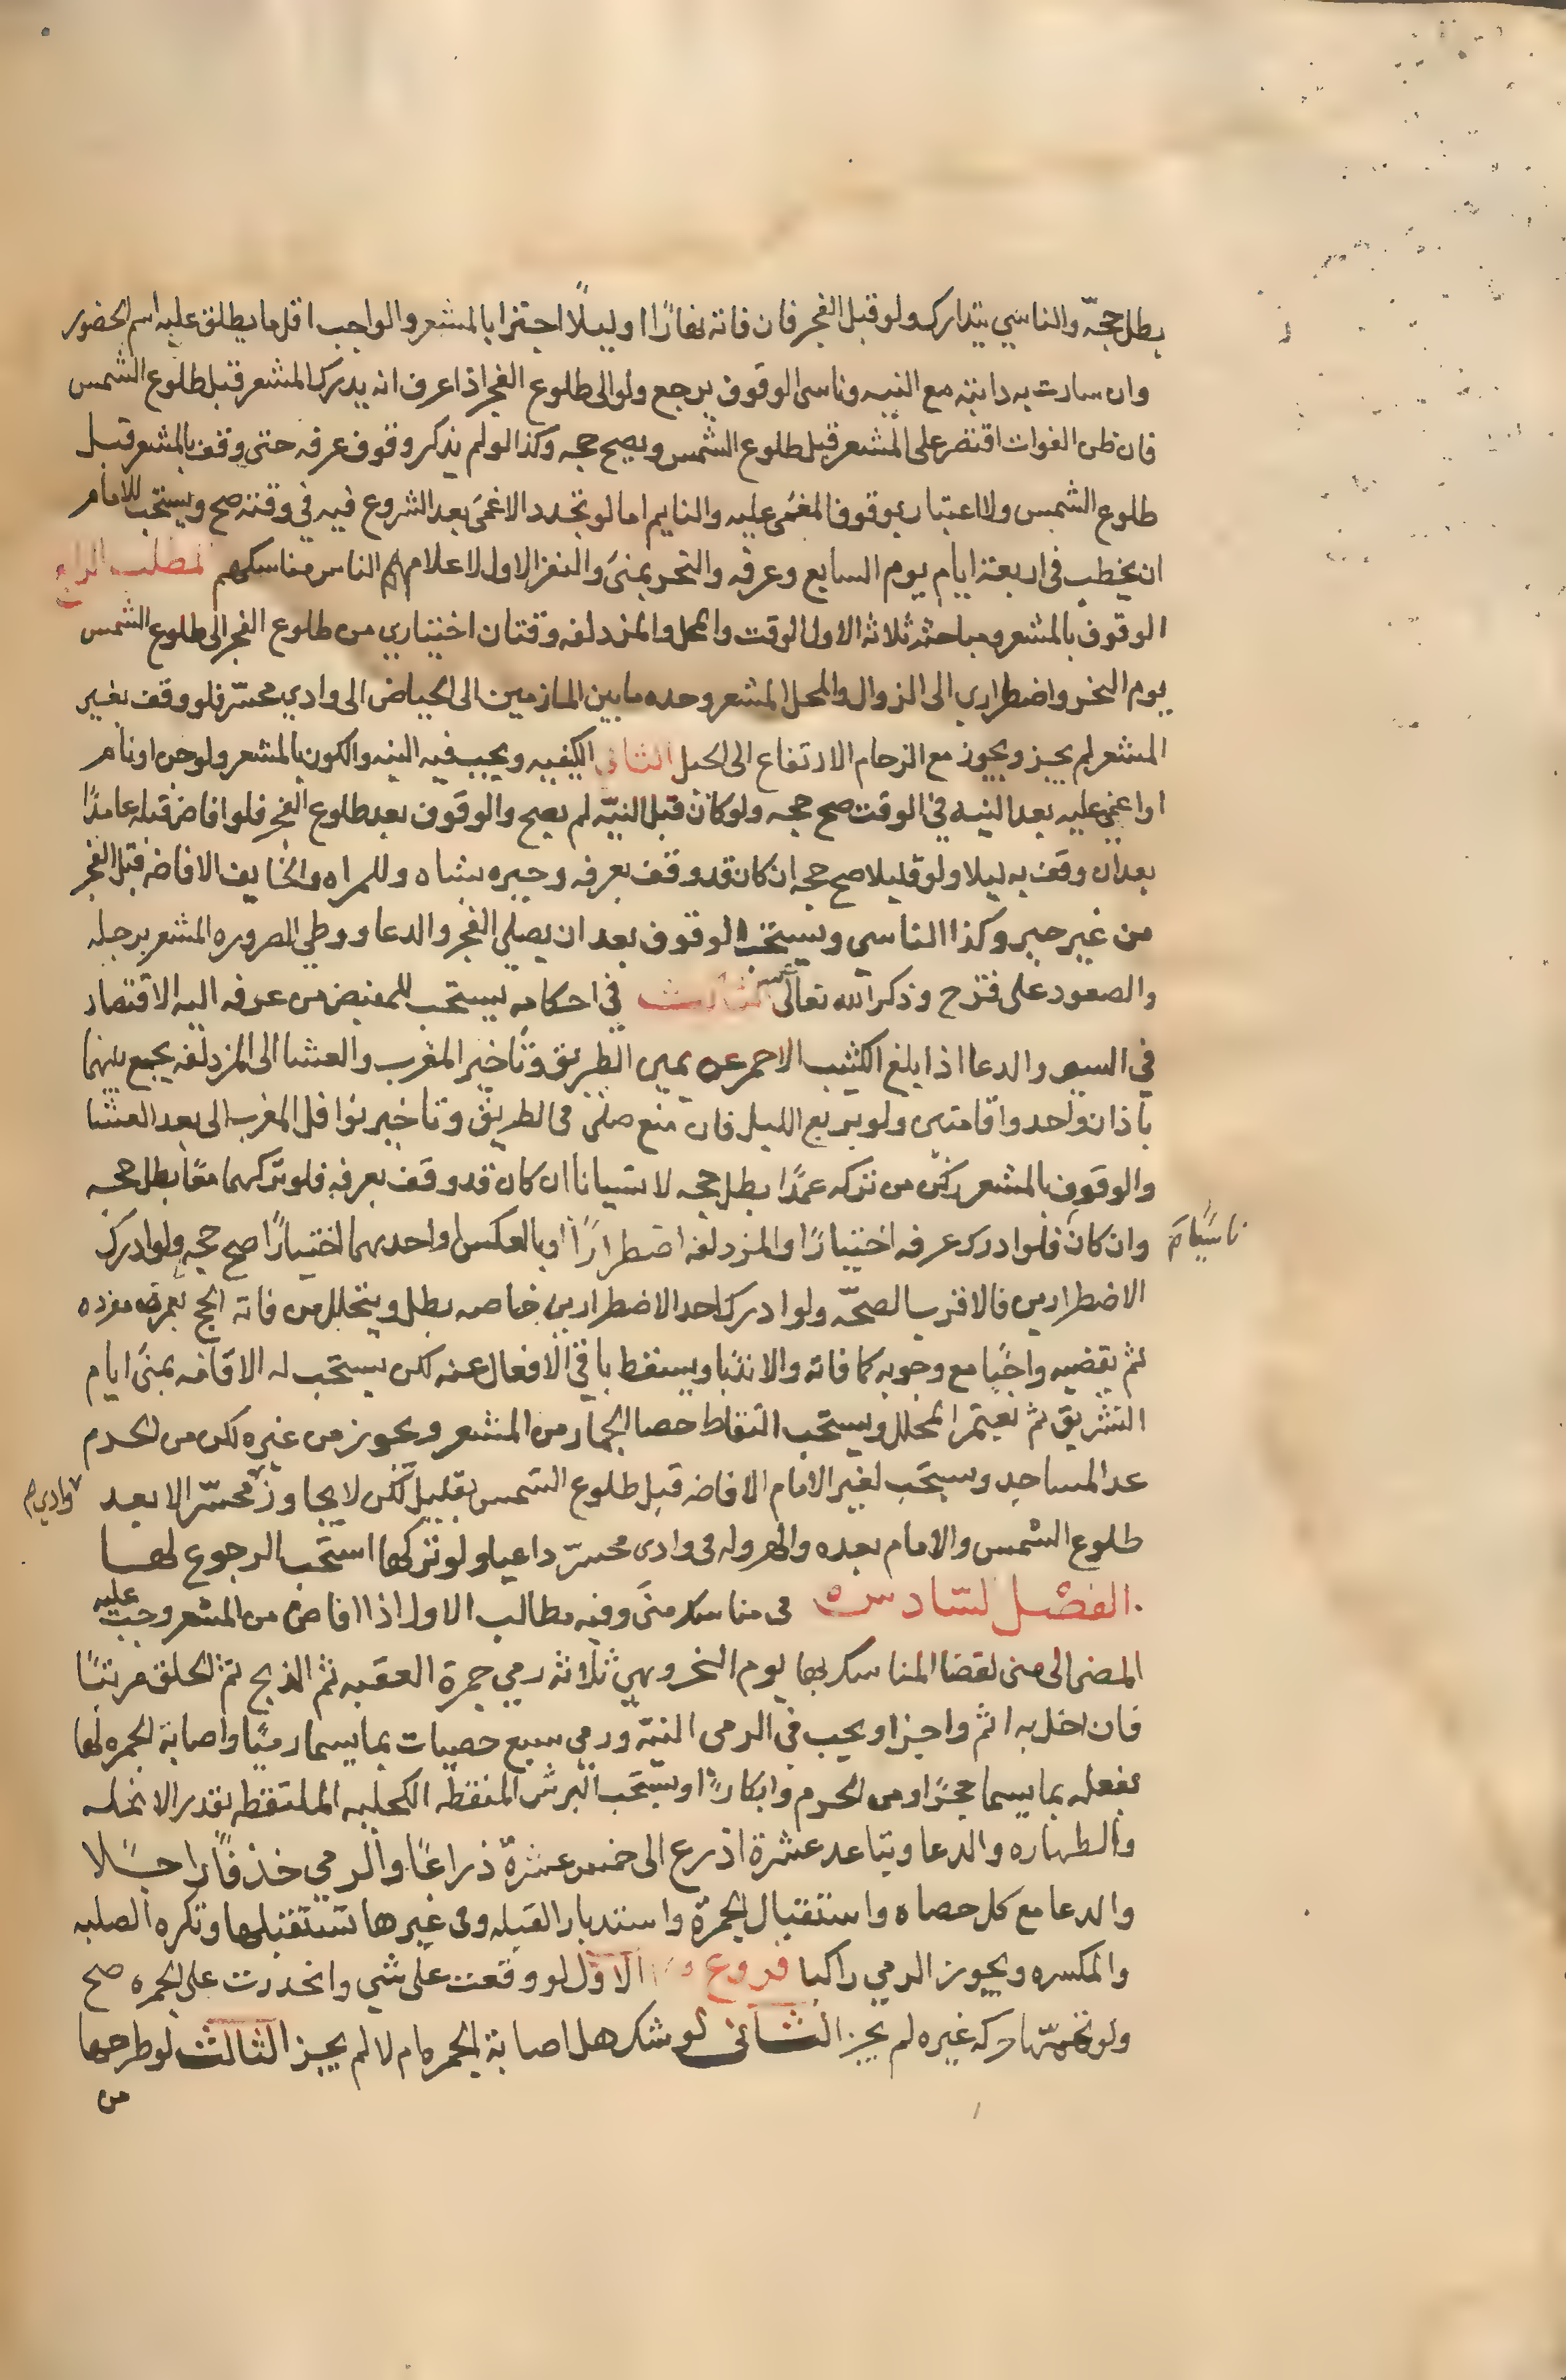 بطل حجّه والناسي يتدارك ولو قبل الفجر فان فاته نهارًا اوليلًا اجتزا بالمشعر والواجب اقل ما يطلق عليه اسم الحضور
وان سارت به دابته مع النيه وناسى الوقوف يرجع ولو الى طلوع الفجر اذا عرف انه يدرك المشعر قبل طلوع الشمس
فان ظن الفوات اقتصر على المشعر قبل طلوع الشمس ويصح حجه وكذا لو لم يذكر وقوف عرفه حتى وقف بالمشعر قبل
طلوع الشمس ولا اعتبار بوقوف المغمى عليه والنايم اما لو تجدد الاغمى بعد الشروع فيه في وقته صح ويستحب للامام
ان يخطب في اربعة ايام يوم السابع وعرفه والنحر بمنىً والنفر الاول لاعلام الناس مناسكهم المطلب الرابع
الوقوف بالمشعر ومباحثه ثلاثه الاول الوقت والمحل والمزدلفه وقتان اختياري من طلوع الفجر الى طلوع الشمس
يوم النحر واضطراري الى الزوال والمحل المشعر وحده ما بين المازمين الى الحياض الى وادي محسّر فلو وقف بغير
المشعر لم يجز ويجوز مع الزحام الارتفاع الى الجبل الثاني الكيفيه ويجب فيه النيه والكون بالمشعر ولو جن او نام
او اغمى عليه بعد النيه في الوقت صح حجه ولو كان قبل النيّه لم يصح والوقوف بعد طلوع الفجر فلو افاض قبله عامدًا
بعد ان وقف به ليلا ولو قليلا صح حجه ان كان قد وقف بعرفه وجبره بشاه وللمراه والخايف الافاضه قبل الفجر
من غير جبر وكذا الناسي ويستحب الوقوف بعد ان يصلى الفجر والدعا ووطي الصروره المشعر برجله
والصعود على قزح وذكر الله تعالى عليه الثالث في احكامه يستحب للمفيض من عرفه اليه الاقتصاد
في السير والدعا اذا بلغ الكثيب الاحمر عن يمين الطريق وتاخير المغرب والعشا الى المزدلفه يجمع بينهما
باذان واحد واقامتين ولو بربع الليل فان منع صلى فى الطريق وتاخير نوافل المغرب الى بعد العشا
والوقوف بالمشعر ركن من تركه عمدًا بطل حجه لا نسيانا ان كان قد وقف بعرفه فلو تركهما معًا بطل حجه
وان كان ناسيًا فلو ادرك عرفه اختيارًا والمزدلفه اضطرارًا او بالعكس او احديهما اختيارًا صح حجه ولو ادرك
الاضطرارين فالاقرب الصحّه ولو ادرك احد الاضطرارين خاصه بطل ويتحلل من فاته الحج بعمرة مفرده
ثم يقضيه واجبًا مع وجوبه كما فاته والا ندبًا ويسقط باقي الافعال عنه لكن يستحب له الاقامه بمنىً ايام
التشريق ثم يعتمر للتحلل ويستحب التقاط حصا الجمار من المشعر ويجوز من غيره لكن من الحرم
عدا المساجد ويستحب لغير الامام الافاضه قبل طلوع الشمس بقليل لكن لا يجاوز وادي محسّر الا بعد
طلوع الشمس والامام بعده والهروله فى وادى محسرّ داعيا ولو تركها استحب الرجوع لها
الفصل السّادس فى مناسك منىً وفيه مطالب الاول اذا افاض من المشعر وجب عليه
المضى الى منى لقضا المناسك بها يوم النحر وهي ثلاثه رمي جمرة العقبه ثم الذبح ثم الحلق مرتبًا
فان اخل به اثم واجزا ويجب في الرمى النيّه ورمي سبع حصيات بما يسما رميًا واصابة الجمره بها
بفعله بما يسما حجرًا ومن الحرم وابكارًا ويستحب البرش المنقطه الكحليه الملتقطه بقدر الانمله
والطهاره والدعا وتباعد عشرة اذرع الى خمس عشرة ذراعًا والرمي خذفًا راجلًا
والدعا مع كل حصاه واستقبال الجمرة واستدبار القبله وفى غيرها تستقبلها وتكره الصلبه
والمكسره ويجوز الرمي راكبا فروع الاول لو وقعت على شي وانحدرت على الجمره صح
ولو تممّها حركه غيره لم يجز الثانى لو شك هل اصابة الجمره ام لا لم يجز الثالث لو طرحها
من